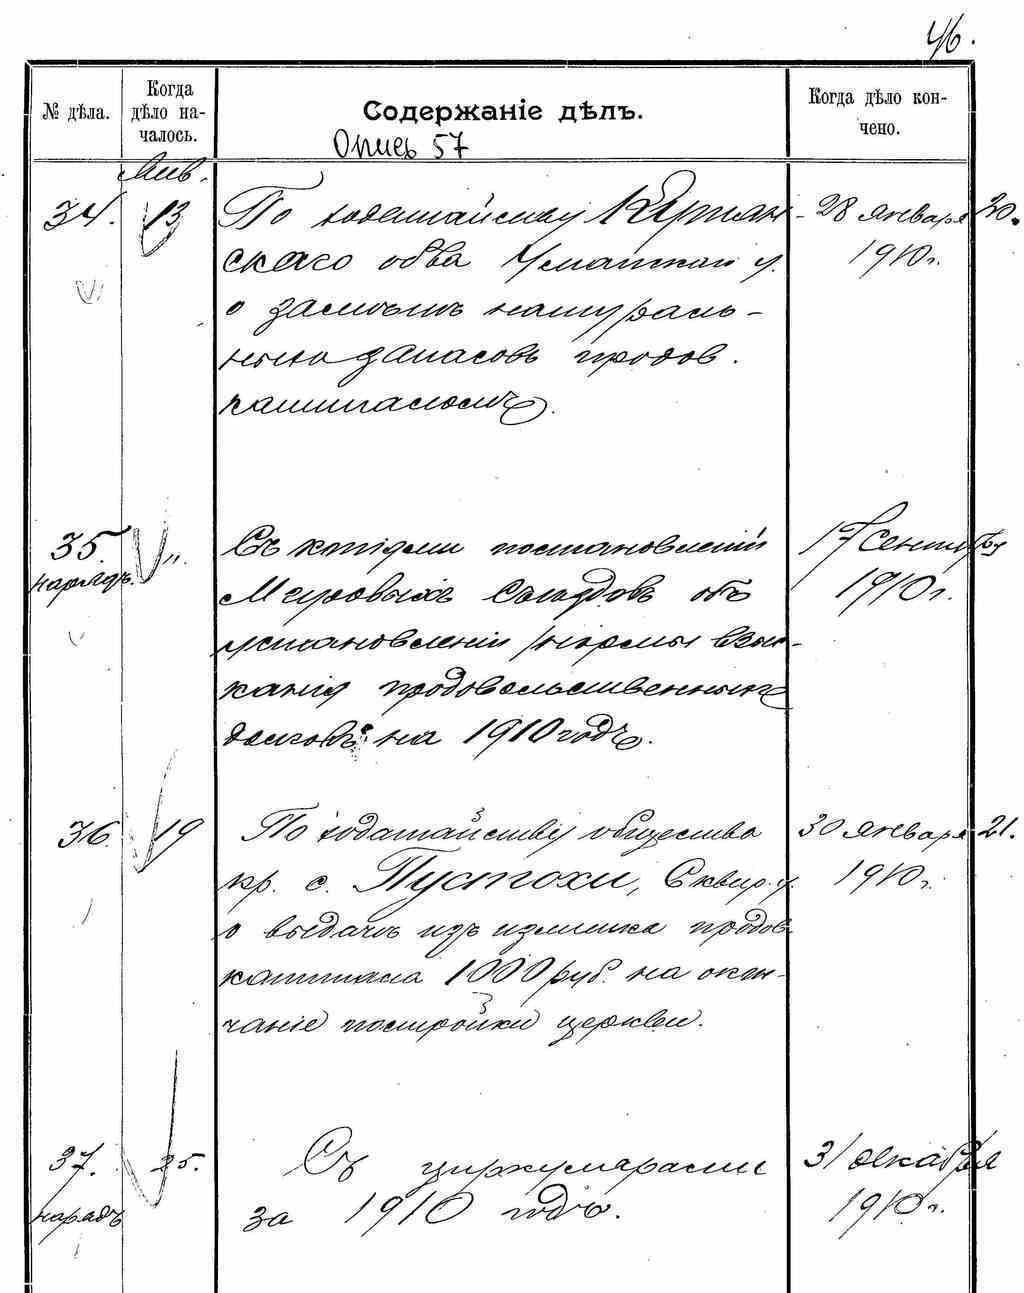 46.
№ дѣла.
Когда дѣло на-чалось.
Содержаніе дѣлъ.
Когда дѣло кон-чено.
Опись 57
Янв.
34. 13 По ходатайству 28 января 20.
скаго об-ва Уманскаго у. 1910 г.
о замѣнѣ натураль-
ныхъ запасовъ продов.
капиталомъ.
35. " Съ копіями постановленій 17 Сентября
нарядъ. Мировыхъ Съѣздовъ объ 1910 г.
установленіи нормы взыс-
канія продовольственныхъ
долговъ на 1910 годъ.
36. 19 По ходатайству общества 30 января 21.
кр. с. Пустохи, Сквир. у. 1910 г.
о выдачѣ изъ излишка продов.
капитала 1000 руб. на окон-
чаніе постройки церкви.
37. 25. Съ циркулярами 31 декабря
нарядъ за 1910 годъ. 1910 г.